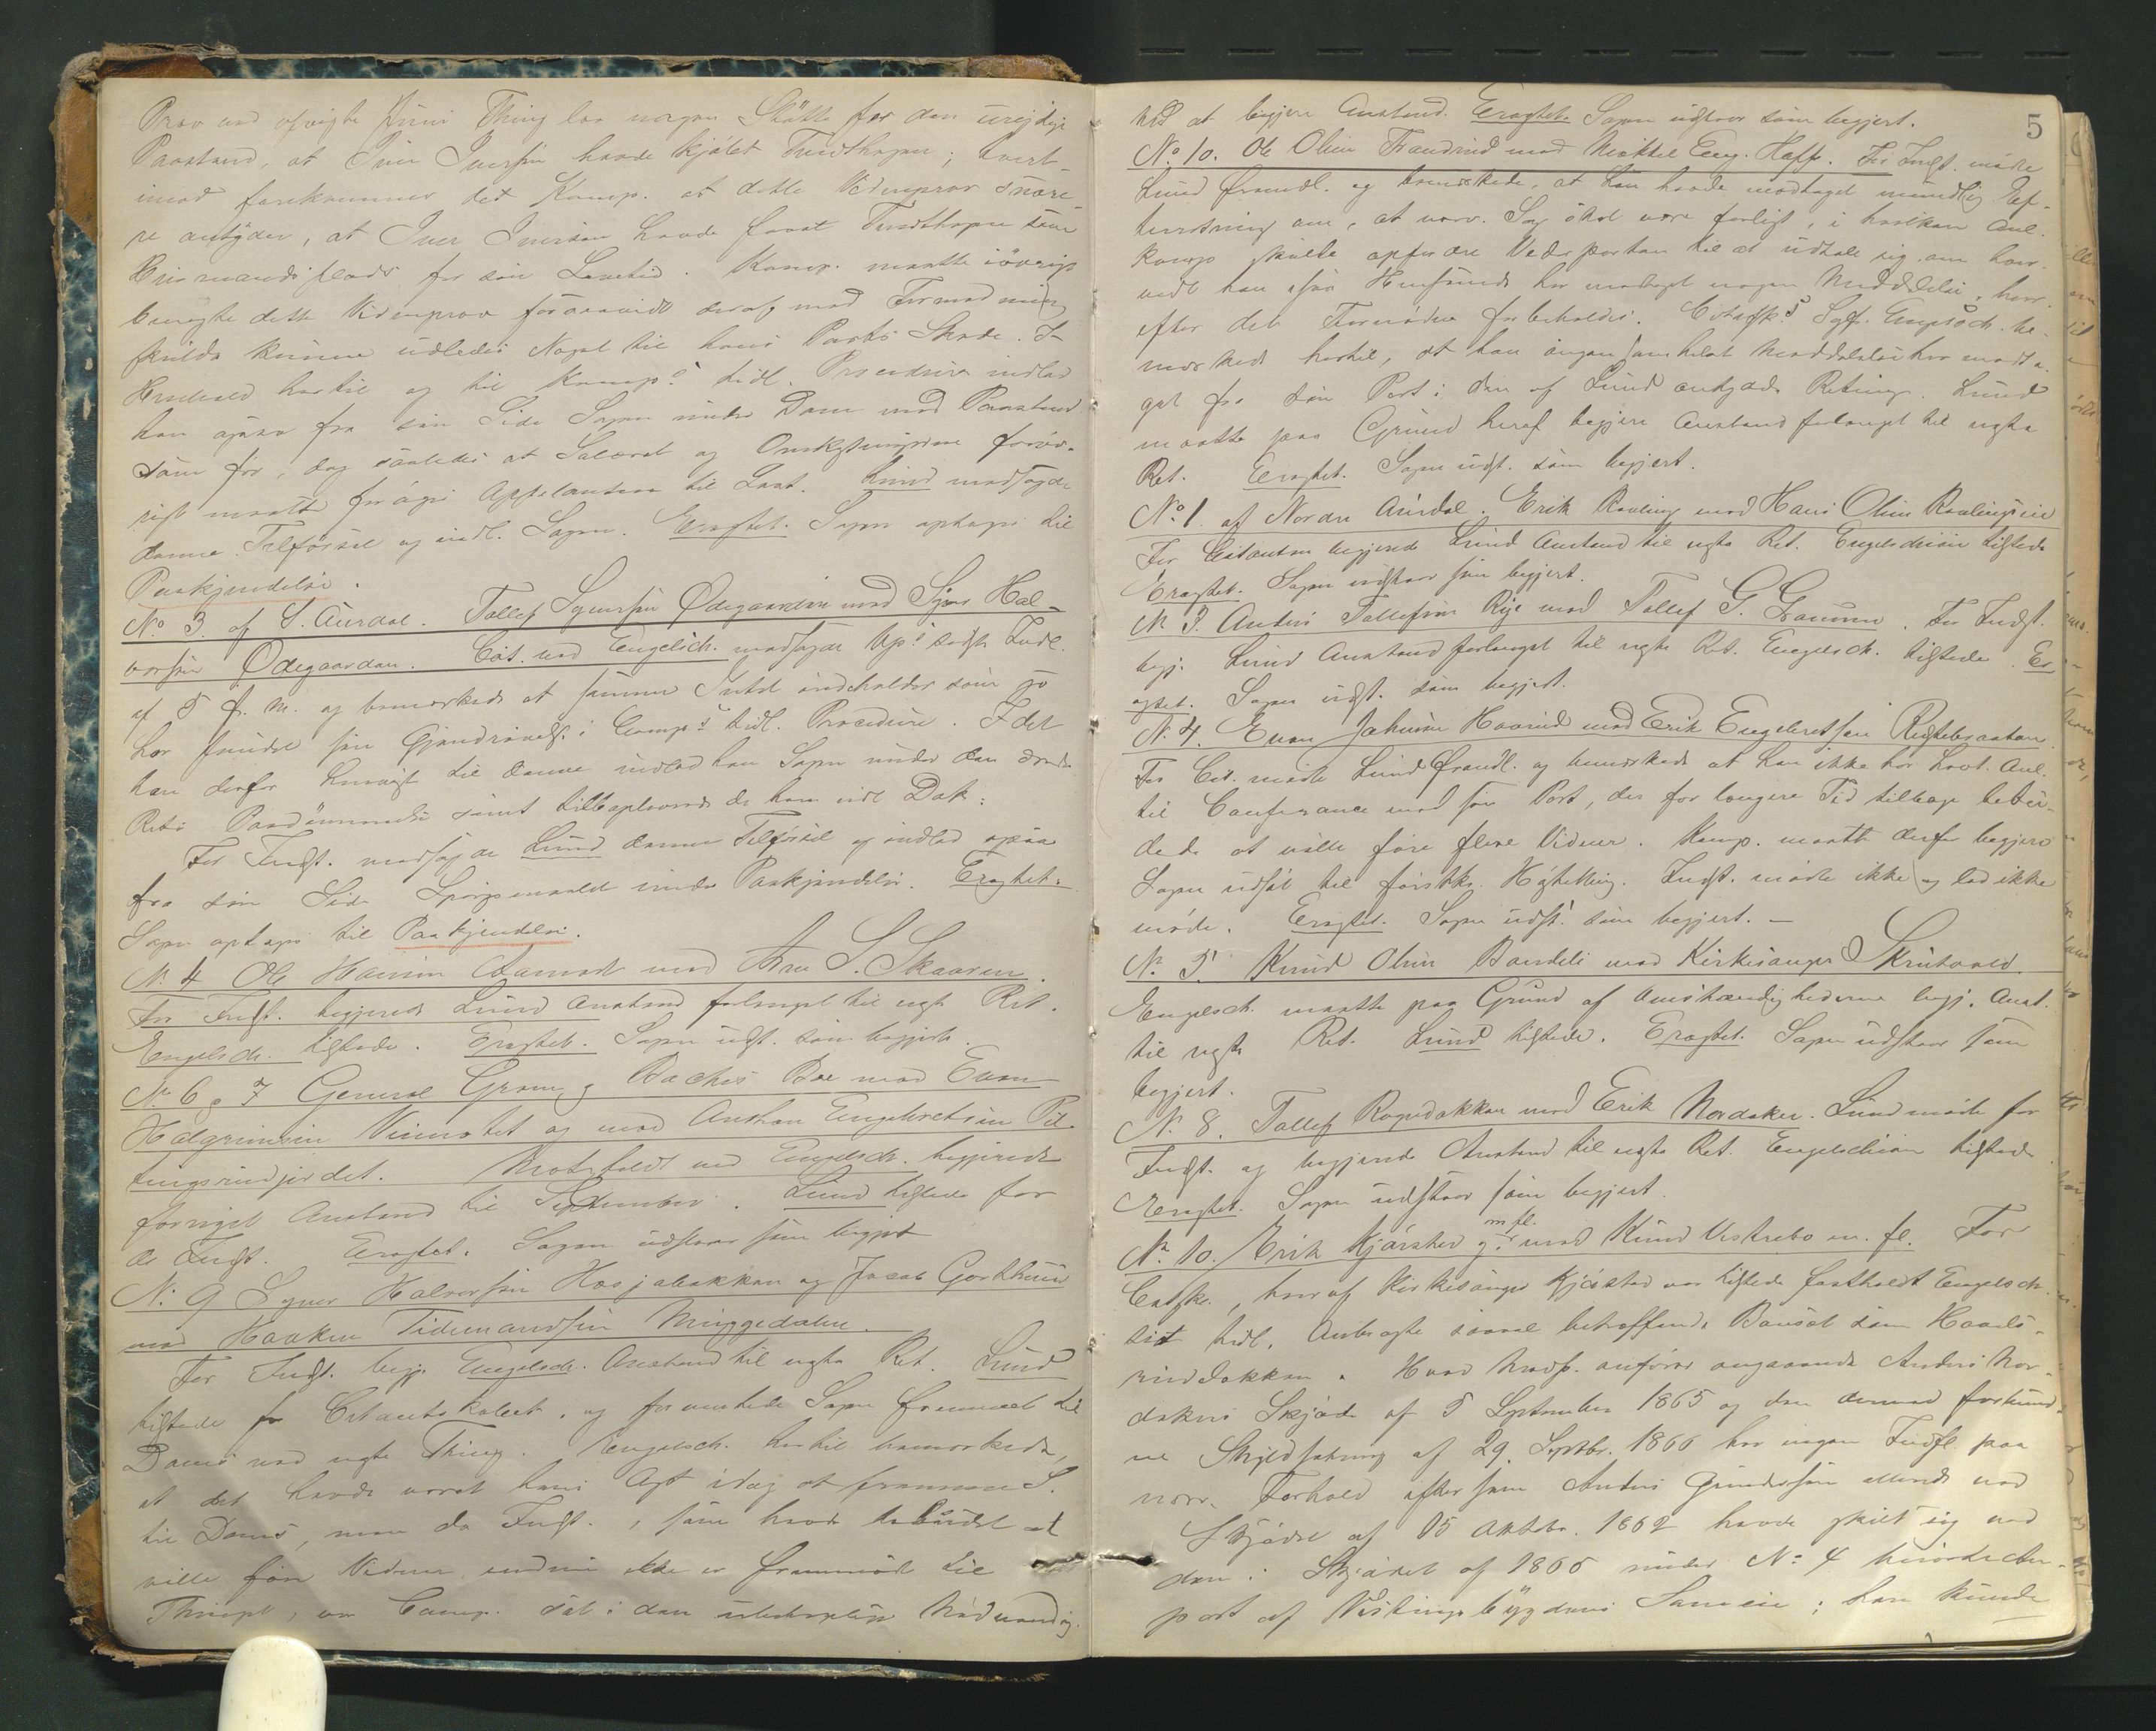 Prov ved afvigte Juni Thing laa nogen Støtte for den urigtige
Paastand, at Iver Iversen havde kjøbt Tredthagen; tvert
imod forekommer det Komp. at dette Vidneprov snare-
re antyder, at Iver Iversen havde faaet Tredthagen som
Huusmandsplads for sin Levetid. Komp. maatte iøvrigt
benegte dette Vidneprov forsaavidt deraf mod Formodning
skulde kunne udledes Noget til hans Parts Skade. I
Henhold hertil og til Komp.s tidl. Procedure indlod
han ogsaa fra sin Side Sagen under Dom med Paastand
som før, dog saaledes at Salæret og Omkostningerne forøv-
rigt maatte forøges Appellanten til Last. Lund modsagde
denne Tilførsel og indl. Sagen. Eragtet. Sagen optages til
Paakjendelse.
No 3 af S. Aurdal. Tollef Syversen Ødegaarden mod Syver Hal-
vorsen Ødegaarden. Cit. ved Engelsch. modsagde Mp.s sidste Indl.
af 5 f. M. og bemærkede at samme Intet indeholder som jo
har fundet sin Gjendrivelse i Comp.s tidl. Procedure. I det
han derfor henviste til denne indlod han Sagen under den ærede
Rets Paadømmelse samt tilbageleverede de ham udl. Dok:
For Indst. modsagde Lund denne Tilførsel og indlod ogsaa
fra sin Side Spørgsmaalet under Paakjendelse. Eragtet.
Sagen optages til Paakjendelse.
No 4 Ole Hansen Aamodt mod Arne S. Skaaren.
For Indst. begjerede Lund Anstand forlanget til negte Ret.
Engelsch. tilstede. Eragtet. Sagen udst. som begjert.
No 6 & 7 General Gram g Baches Boe mod Even
Halgrimsen Veimotet og mod Anthon Engebretsen Pit-
tingsrudjordet. Motzfeldt ved Engelsch. begjerede
fornyet Anstand til September. Lund tilstede for
de Indst. Eragtet. Sagen udstaar som begjert
No 9 Syver Halvorsen Hosjabakken og Jacob Gorthuun
mod Haaken Tidemandsen Muggedalen.
For Indst. begj. Engelsch. Anstand til negte Ret. Lund
tilstede for Citantskabet, og formente Sagen fremmet til
Doms ved negte Thing. Engelsch. hertil bemærkede,
at det havde været hans Agt idag at fremme S.
til Doms, men da Indst., som havde bebudet at
ville føre Vidner endnu ikke er fremmødt til
Thinget, var Comp. sat i den ubehagelige Nødvendig-
hed at begjere Anstand. Eragtet. Sagen udstaar som begjert.
5
No 10. Ole Olsen Frandrud mod Mikkel Eng. Haff. For Indst. mødte
Lund fremdl. og bemærkede, at han havde modtaget mundtlig Ef-
terretning om, at nærv. Sag skal være forligt, i hvilken Anl.
Komp. skulde opfordre Vederparten til at udtale sig om hvor-
vidt han i saa Henseende har modtaget nogen Meddelelse, hvor-
efter det Fornødne forbeholdes. Citatsk.s Sgf. Engelsch. be-
mærkede hertil, at han ingensomhelst Meddelelse har modta-
get fra sin Part i den af Lund antydede Retning. Lund
maatte paa Grund heraf begjere Anstand forlanget til negte
Ret. Eragtet. Sagen udst. som begjert.
No 1 af Nordre Aurdal. Erik Ranling mod Hans Olsen Ranlingseie
For Citanten begjerede Lund Anstand til negte Ret. Engelschiøn tilstede
Eragtet. Sagen udstaar som begjert.
No 3. Anders Tollefsen Rye mod Tollef G. Graunn. For Indst.
begj. Lund Anstand forlanget til negte Ret. Engelsch. tilstede. Er
agtet. Sagen udst. som begjert.
No 4. Even Johnsen Haarud mod Erik Engebretsen Reglebraaten
For Cit. mødte Lund fremdl. og bemærkede at han ikke har havt Anl.
til Conferance med sin Part, der for længere Tid tilbage bebu-
dede at ville føre flere Vidner. Komp. maatte derfor begjere
Sagen udsat til førstk. Høstting. Indst. mødte ikke og lod ikke
møde. Eragtet. Sagen udst. som begjert. —
No 5 Knud Olsen Bandeli mod Kirkesanger Skrutvold.
Engelsch. maatte paa Grund af Omstændighederne begj. Anst.
til negte Ret. Lund tilstede. Eragtet. Sagen udstaar som
begjert.
No 8. Tollef Rognebakken mod Erik Nordaker. Lund mødte for
Indst. og begjerede Anstand til negte Ret. Engelschiøn tilstede
Eragtet. Sagen udstaar som begjert.
No 10. Erik Kjørstad m fl. mod Knud Vestrebo m. fl. For
Citsk., hvoraf Kirkesanger Kjørstad var tilstede fastholdt Engelsch.
sit tidl. Anbragte saavel betreffende Bauset som Haavels-
rudbakken. Hvad Modp. anfører angaaende Anders Nor-
dakers Skjøde af 5 September 1865 og den dermed forbund-
ne Skyldsætning af 29. Septbr. 1866 har ingen Indfl. paa
nærv. Forhold eftersom Anders Gundersen allerede ved
Skjødet af 15 Oktobr. 1862 havde skilt sig ved
den i Skjødet af 1865 under No 4 benævnte An-
part af Vestringsbygdens Sameie; han kunde